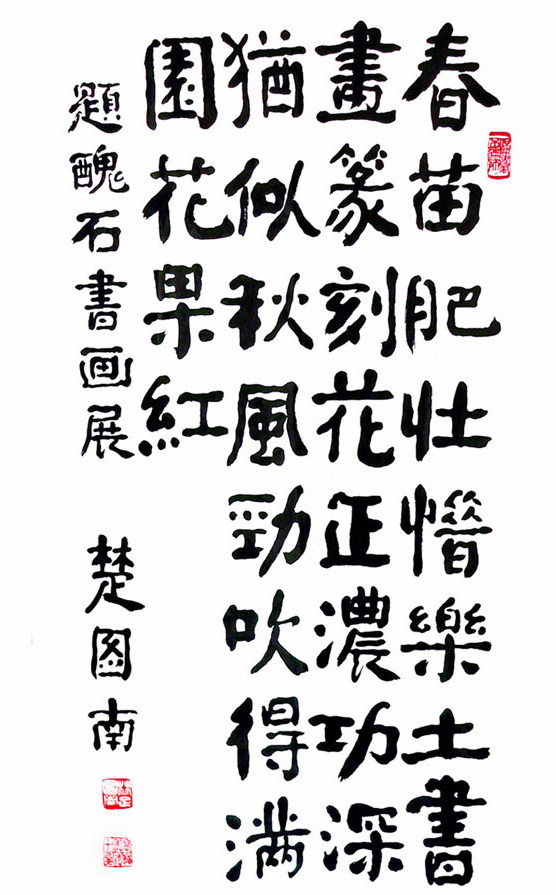 春苗肥壮惜樂土書
畫篆刻花正濃功深
猶似秋風勁吹得满
園花果紅
題醜石書画展 楚图南